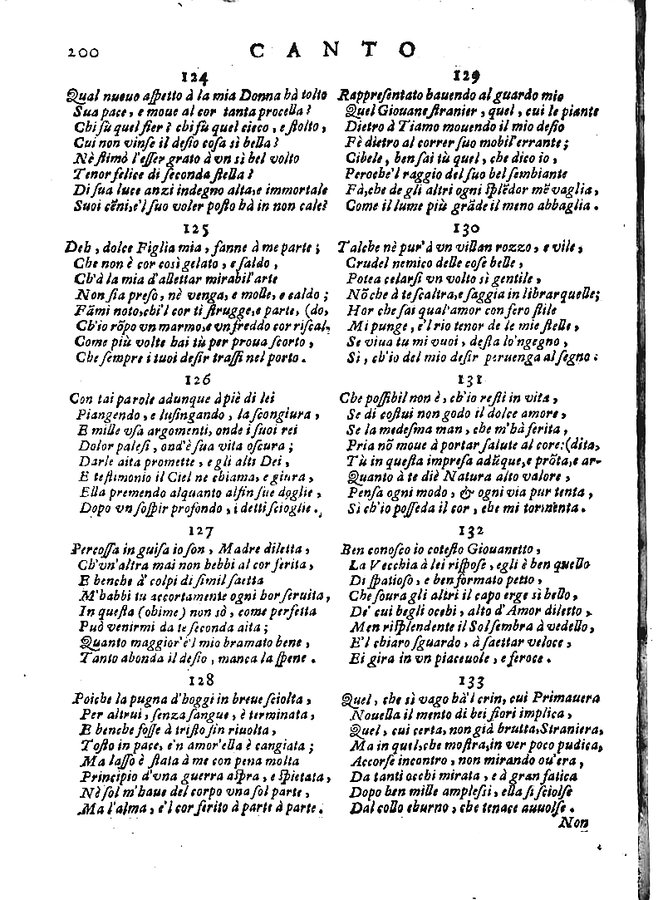 200 CANTO
124
Qual nuouo aspetto à la mia Donna hà tolto
Sua pace, e moue al cor tanta procella?
Chi fù quel fier? chi fù quel cieco, e stolto,
Cui non vinse il desio cosa sì bella?
Nè stimò l'esser grato à vn sì bel volto
Tenor felice di seconda stella?
Di sua luce anzi indegno alta, e immortale
Suoi cẽni, e'l suo voler posto hà in non cale?
125
Deh, dolce Figlia mia, fanne à me parte;
Che non è cor così gelato, e saldo,
Ch'à la mia d'allettar mirabil'arte
Non sia preso, nè venga, e molle, e caldo;
Fãmi noto, chi'l cor ti strugge, e parte, (do,
Ch'io rõpo vn marmo, e vn freddo cor riscal,
Come più volte hai tù per proua scorto,
Che sempre i tuoi desir trassi nel porto.
126
Con tai parole adunque à piè di lei
Piangendo, e lusingando, la scongiura,
E mille vsa argomenti, onde i suoi rei
Dolor palesi, ond'è sua vita oscura;
Darle aita promette, e gli alti Dei,
E testimonio il Ciel ne chiama, e giura,
Ella premendo alquanto alfin sue doglie,
Dopo vn sospir profondo, i detti scioglie.
127
Percossa in guisa io son, Madre diletta,
Ch'vn'altra mai non hebbi al cor ferita,
E benche d' colpi di simil saetta
M'habbi tu accortamente ogni hor seruita,
In questa (ohime) non sò, come perfetta
Può venirmi da te seconda aita;
Quanto maggior'è'l mio bramato bene,
Tanto abonda il desio, manca la spene.
128
Poiche la pugna d'hoggi in breue sciolta,
Per altrui, senza sangue, è terminata,
E benche fosse à tristo fin riuolta,
Tosto in pace, e'n amor'ella è cangiata;
Ma lasso è stata à me con pena molta
Principio d'vna guerra aspra, e spietata,
Nè sol m'haue del corpo vna sol parte,
Ma l'alma, e'l cor ferito à parte à parte.
129
Rappresentato hauendo al guardo mio
Quel Giouane stranier, quel, cui le piante
Dietro à Tiamo mouendo il mio desio
Fè dietro al correr suo mobil'errante;
Cibele, ben sai tù quel, che dico io,
Peroche'l raggio del suo bel sembiante
Fà, che de gli altri ogni splẽdor mẽ vaglia,
Come il lume più grãde il meno abbaglia.
130
Talche nè pur'à vn villan rozzo, e vile,
Crudel nemico delle cose belle,
Potea celarsi vn volto sì gentile,
Nõ che à te scaltra, e saggia in librar quelle;
Hor che sai qual'amor con fero stile
Mi punge, e'l rio tenor de le mie stelle,
Se viua tu mi vuoi, desta lo'ngegno,
Sì, ch'io del mio desir peruenga al segno:
131
Che possibil non è, ch'io resti in vita,
Se di costui non godo il dolce amore,
Se la medesma man, che m'hà ferita,
Pria nõ moue à portar salute al core: (dita,
Tù in questa impresa adũque, e prõta, e ar-
Quanto à te diè Natura alto valore,
Pensa ogni modo, & ogni via pur tenta,
Sì ch'io possieda il cor, che mi tormenta.
132
Ben conosco io cotesto Giouanetto,
La Vecchia à lei rispose, egli è ben quello
Di spatioso, e ben formato petto,
Che soura gli altri il capo erge sì bello,
De' cui begli occhi, alto d'Amor diletto,
Men risplendente il Sol sembra à vedello,
E'l chiaro sguardo, à saettar veloce,
Ei gira in vn piaceuole, e feroce.
133
Quel, che sì vago hà'l crin, cui Primauera
Nouella il mento di bei fiori implica,
Quel, cui certa, non già brutta, Straniera,
Ma in quel, che mostra, in ver poco pudica,
Accorse incontro, non mirando ou'era,
Da tanti occhi mirata, e à gran fatica
Dopo ben mille amplessi, ella si sciolse
Dal collo eburno, che tenace auuolse.
Non